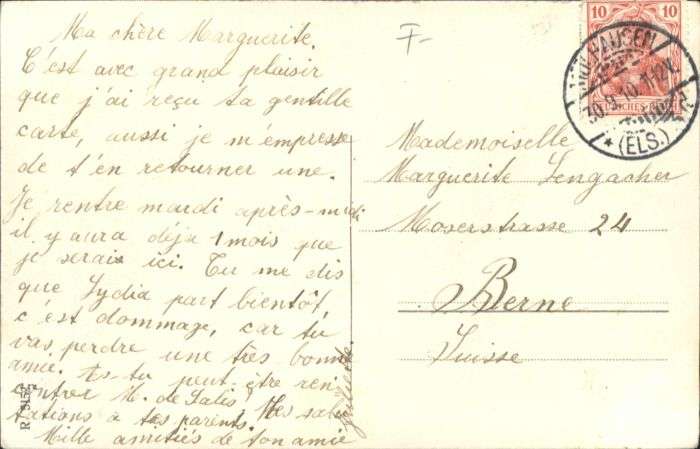 Ma chère Marguerite.
C'est avec grand plaisir
que j'ai reçu ta gentille
carte, aussi je m'empresse
de t'en retourner une.
Je rentre mardi après-midi
il y aura déja 1 mois que
je serais ici. Tu me dis
que Lydia part bientôt,
c'est dommage, car tu
vas perdre une très bonne
amie. As-tu peut-être ren-
contrer M. de Salis? Mes salu
tations à tes parents.
Mille amitiés de ton amie
Juliette
R 9155
F-
10 10
MÜLHAUSEN
30.9.10. 11-12V
* (ELS.)
Mademoiselle
Marguerite Lengacher
Moserstrasse 24
Berne
Suisse